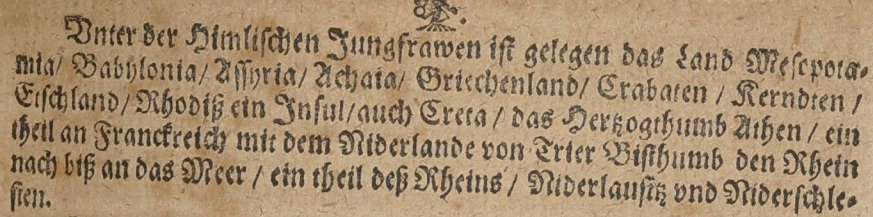 Vnter der Himlischen Jungfrawen ist gelegen das Land Mesopota-
mia/ Babylonia/ Assyria/ Achaia/ Griechenland/ Crabaten / Kerndten /
Etschland/ Rhodiß ein Insul/ auch Creta / das Hertzogthumb Athen / ein
theil an Franckreich mit dem Niderlande von Trier Bisthumb den Rhein
nach biß an das Meer / ein theil deß Rheins / Niderlausitz vnd Niderschle-
sien.